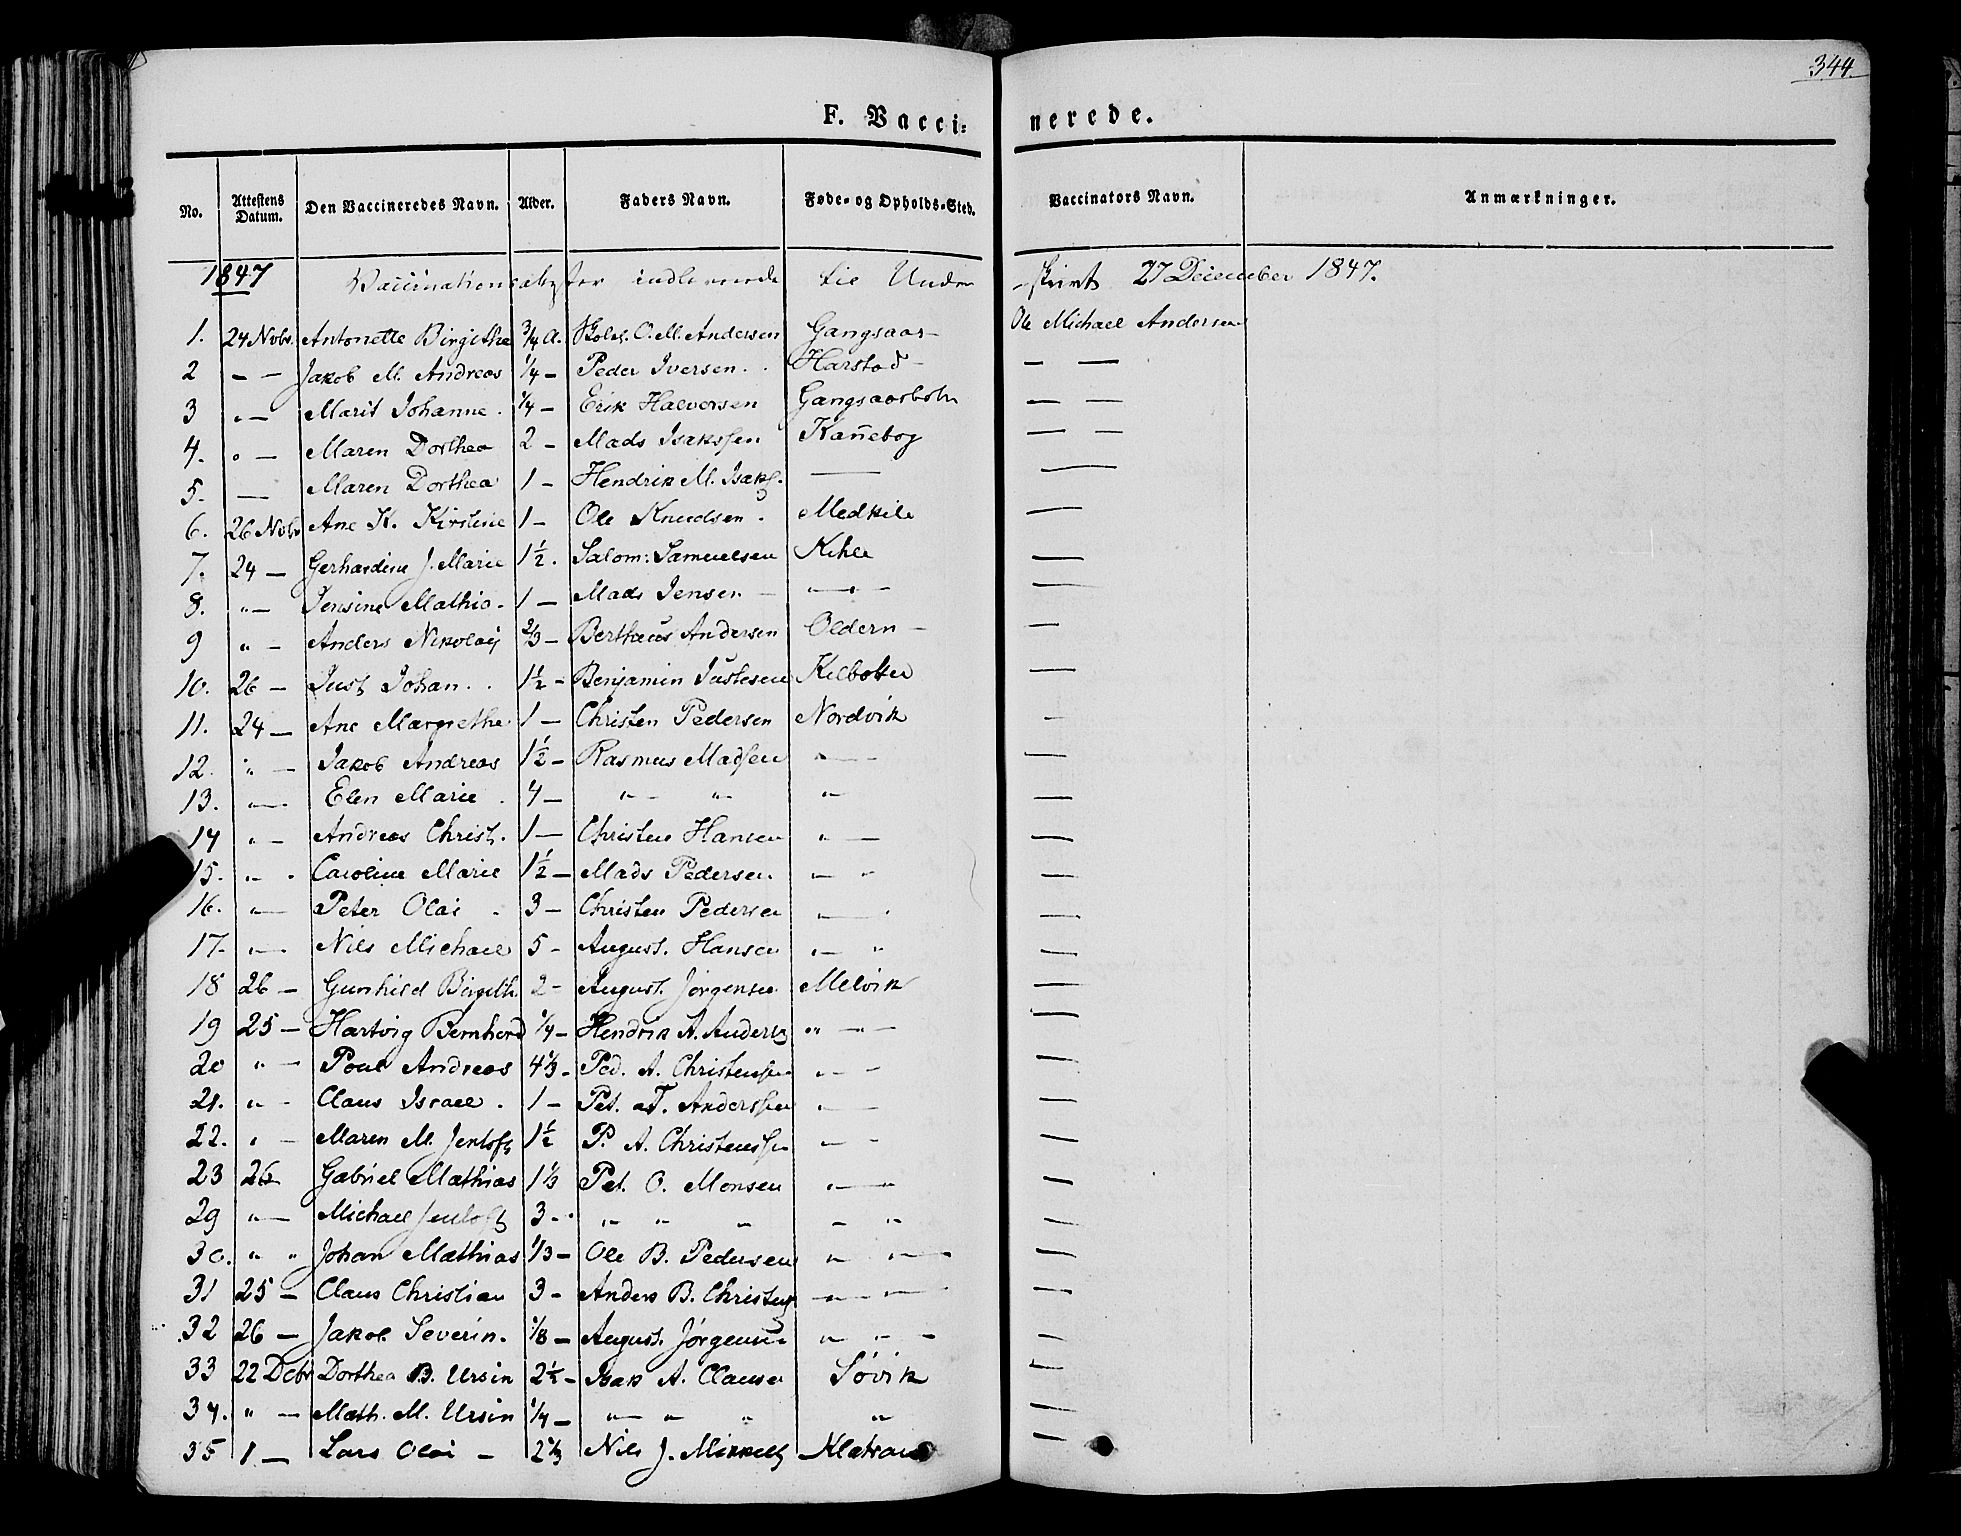 344.
F. Vacci- nerede.
No. Attestens Datum. Den Vaccineredes Navn. Alder. Faders Navn. Føde- og Opholds-Sted. Vaccinators Navn. Anmærkninger.
1847 Vaccinations indleverede til Under 27 December 1847.
1. 24 Nobr. Antonette Birgithe 3/4 A. O. M. Andersen Gangsaas — Ole Michael Andersen
2 — — Jakob M. Andreas 1/4 — Peder Iversen . . Harstad — — —
3 „ — Marit Johanne . 1/4 — Erik Halversen Gangsaasbotn — —
4. „ — Maren Dorthea 2 — Mads Isakssen Kanebog — —
5. — Maren Dorthea 1 — Hendrik M. Isaks. — —
6. 26 Nobr Ane K. Kirstine 1 — Ole Knudsen . Medkile —
7. 24 — Gerhardine J. Marie 1 1/2 . Salom: Samuelsen Kihle —
8. „ — Jensine Mathia — 1 — Mads Jensen — „ — „ — —
9 „ — Anders Nikolaij 2/3 — Berthæus Andersen Oldern — —
10. 26 — Just Johan . . 1 1/2 — Benjamin Justesen Kilbotten —
11. 24 — Ane Margrethe 1 — Christen Pedersen Nordvik —
12. „ — Jakob Andreas 1 1/2 — Rasmus Madsen „ — —
13. „ — Elen Marie . 4 — „ — „ „ — —
14 „ — Andreas Christ. 1 — Christen Hansen „ — —
15. „ — . Caroline Marie 1 1/2 — Mads Pedersen „ — „ —
16. „ — Peter Olai . 3 — Christen Pedersen „ — —
17. „ — Nils Michael 5 — August. Hansen „ — „ —
18 26 — Gunhild Birgith 2 — August. Jørgensen Melvik —
19 25 — Hartvig Bernhard 1/4 — Hendrik A. Anders „ — „ — —
20 „ — Poul Andreas 4 1/3 — Ped. A. Christenssen „ — — —
21. „ — Claus Israel . 1 — Pet. T. Anderssen „ — —
22. „ — Maren M. Jentoft 1 1/2 P. A. Christenssen „ — — —
23 26 — Gabriel Mathias 1 1/3 Pet. O. Monsen „ — „ —
29 „ — Michael Jentoft 3 — . „ — „ „ — „ —
30. „ „ Johan Mathias 1/3 — Ole B. Pedersen „ „ — —
31 25 — Claus Christian 3 — Anders B. Christens „ — „ — —
32 26 — Jakob Severin. 1/8 — August. Jørgensen „ „ — —
33 22 Debr Dorthea B. Ursin 2 1/2 — Isak A. Clausen Søvik —
34. „ — Math. M. Ursin 1/4 — „ — „ „ „ —
35 1 — Lars Olai — 2 1/3 Nils J. Mikkels —